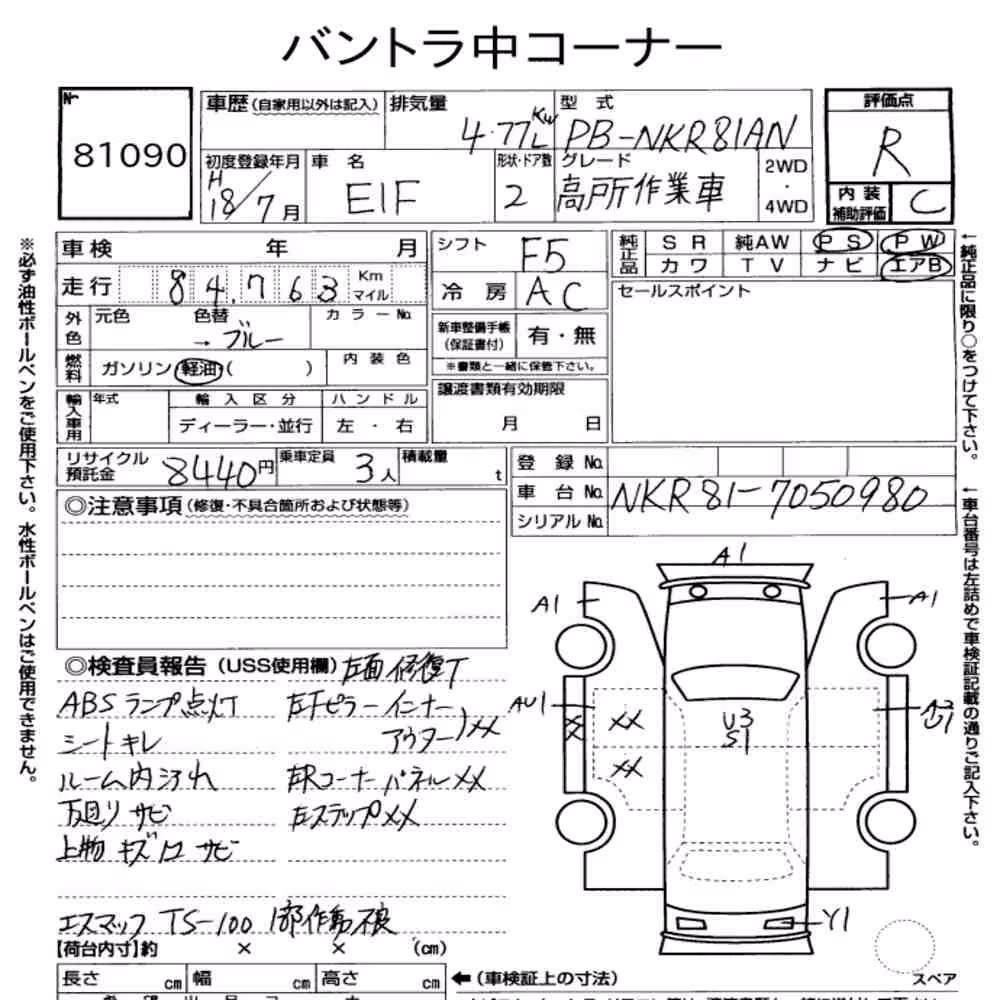 バントラ中コーナー
№ 81090
車歴(自家用以外は記入) 排気量 4.77L Kw 型式 PB-NKR81AN
評価点 R
初度登録年月 H18/7月 車名 ElF 形状・ドア数 2 グレード 高所作業車 2WD・4WD
内装補助評価 C
車検 年 月
シフト F5
純正品 SR 純AW PS PW
カワ TV ナビ エアB
走行 84,763 Km マイル
冷房 AC
セールスポイント
外色 元色 色替 → ブルー カラーNo.
新車整備手帳(保証書付) 有・無
※書類と一緒に保管下さい。
燃料 ガソリン 軽油・( ) 内装色
譲渡書類有効期限
月 日
輸入車用 年式 輸入区分 ハンドル
ディーラー・並行 左・右
リサイクル預託金 8440円 乗車定員 3人 積載量 t
登録No.
車台No. NKR81-7050980
シリアルNo.
◎注意事項(修復・不具合箇所および状態等)
◎検査員報告(USS使用欄) 左面修復T
ABSランプ点灯 左Fピラーインナー
シートキレ アウター)XX
ルーム内汚れ 左Rコーナーパネル XX
下廻りサビ 左ステップXX
上物キズ凹サビ
エスマック TS-100 1部作動不良
【荷台内寸】約 × × (cm)
長さ cm 幅 cm 高さ cm
←(車検証上の寸法)
A1
A1
A1
AU1
XX
XX
XX
U3
S1
Y1
スペア
※必ず油性ボールペンをご使用下さい。水性ボールペンはご使用できません。
←純正品に限り○をつけて下さい。
←車台番号は左詰めで車検証記載の通りご記入下さい。